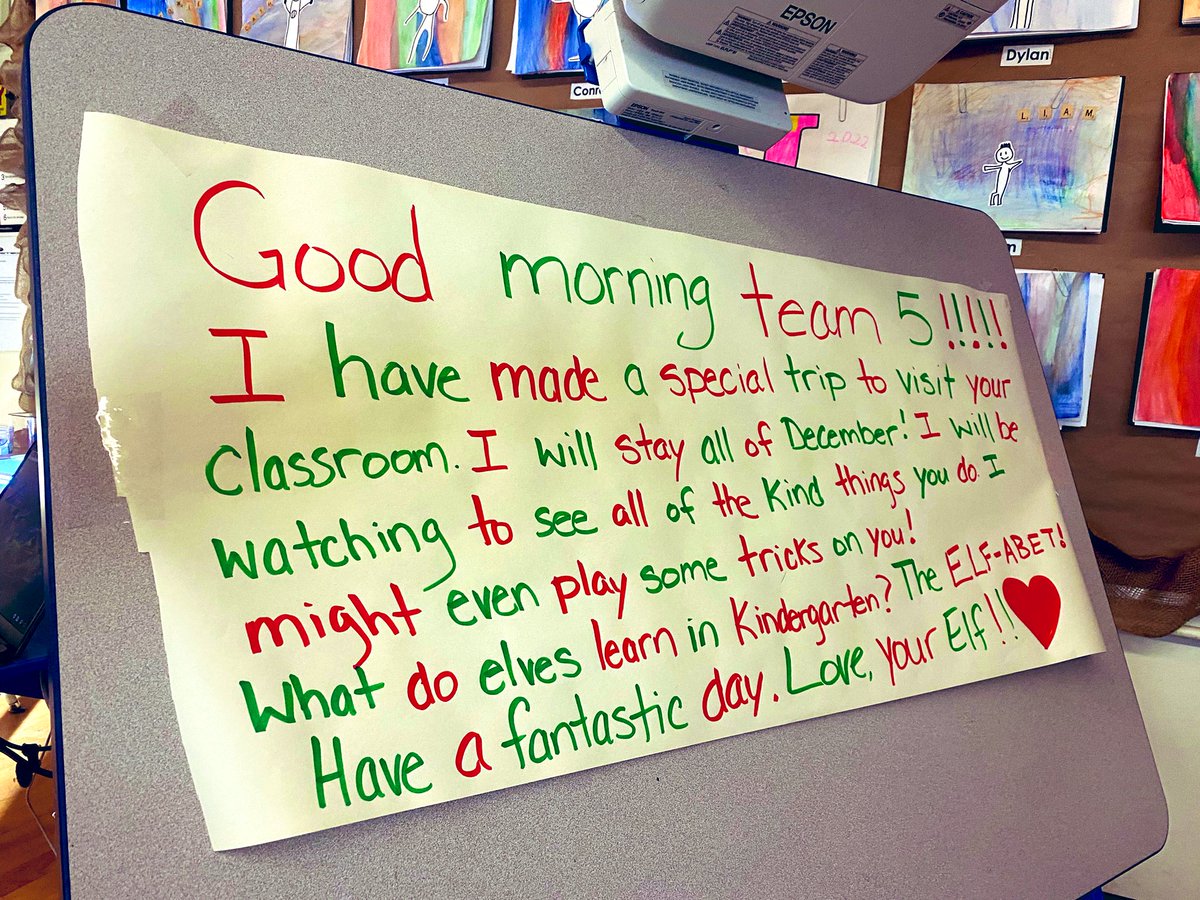 EPSON
EPSON
Dylan
Conr
LIAM
2022
Good morning team 5!!!!!
I have made a special trip to visit your
classroom. I will stay all of December! I will be
watching to see all of the Kind things you do. I
might even play some tricks on you!
What do elves learn in Kindergarten? The ELF-ABET!
Have a fantastic day. Love, your Elf!!